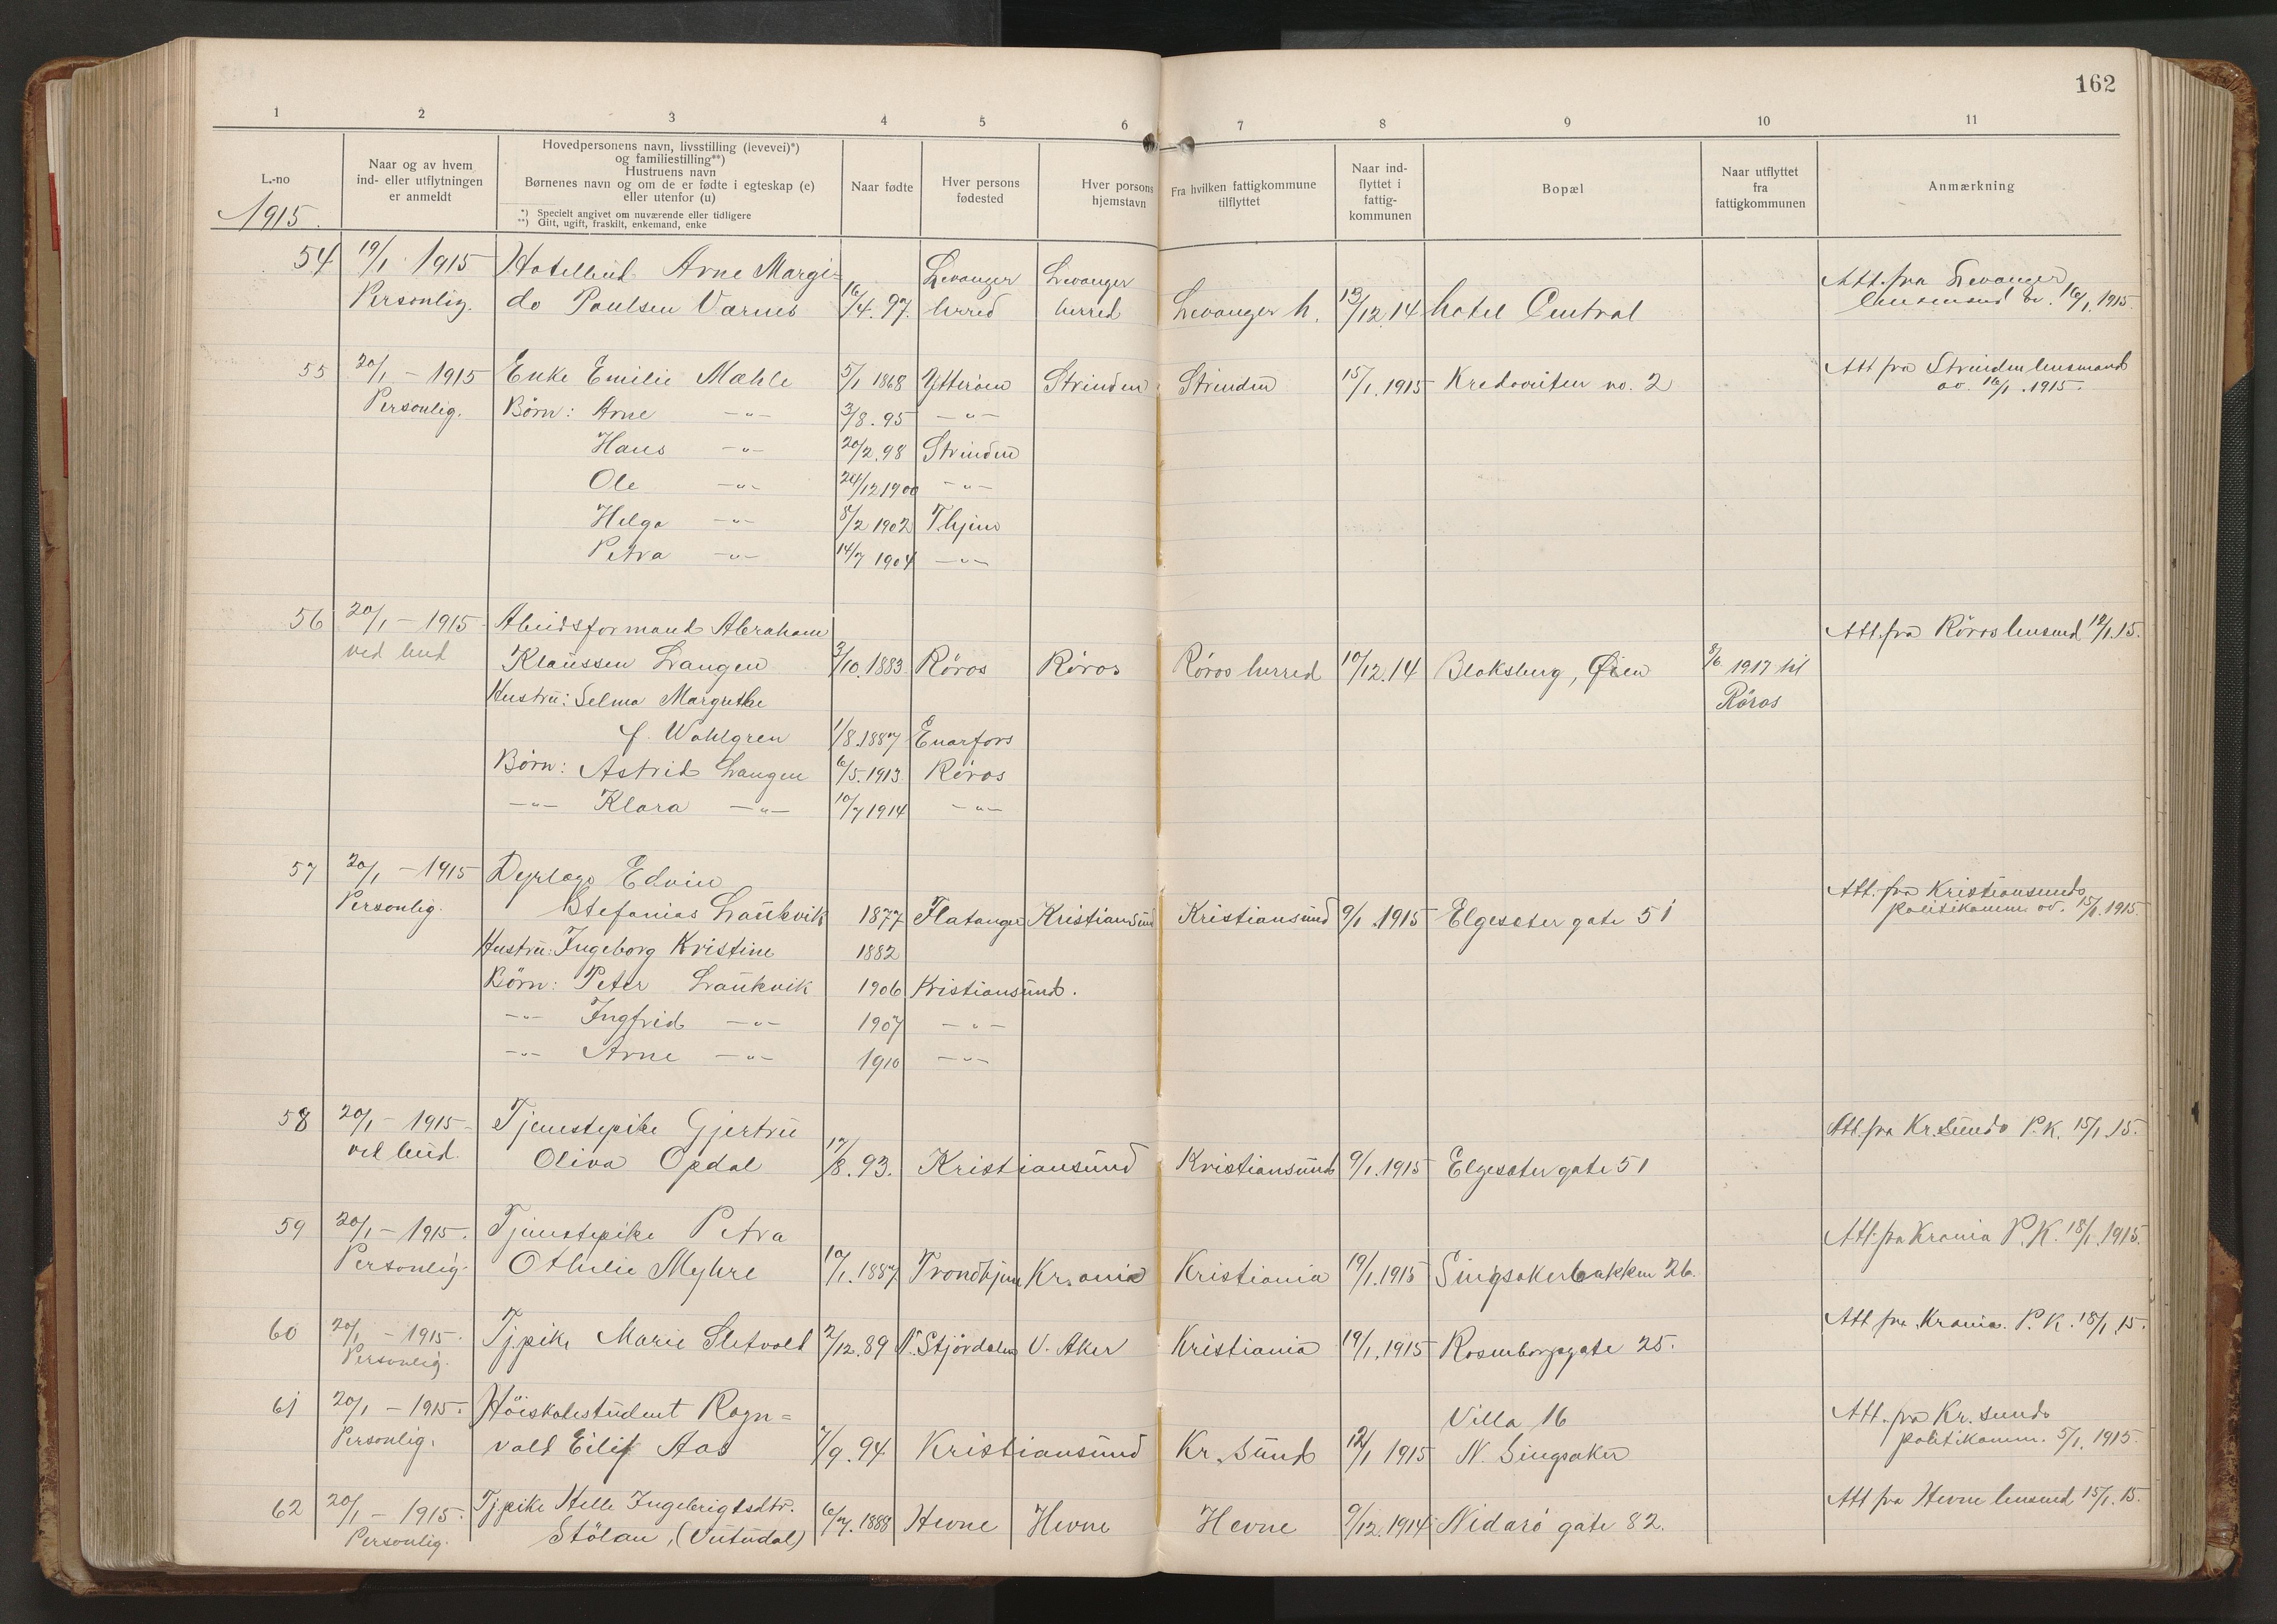 162
1 2 3 4 5 6 7 8 9 10 11
L.-no
Naar og av hvem
ind- eller utflytningen
er anmeldt
Hovedpersonens navn, livsstilling (levevei)*)
og familiestilling**)
Hustruens navn
Børnenes navn og om de er fødte i egteskap (e)
eller utenfor (u)
*) Specielt angivet om nuværende eller tidligere
**) Gift, ugift, fraskilt, enkemand, enke
Naar fødte
Hver persons
fødested
Hver porsons
hjemstavn
Fra hvilken fattigkommune
tilflyttet
Naar ind-
flyttet i
fattig-
kommunen
Bopæl
Naar utflyttet
fra
fattigkommunen
Anmærkning
1915.
54 19/1 1915 Hotelbud Arne Margi= Levanger Levanger Att. fra Levanger
Personlig. do Poulsen Varnes 16/4.97. herred herred Levanger h. 13/12.14 Hotel Central lensmand av. 16/1.1915.
55 20/1 - 1915 Enke Emilie Mæhle 5/1 1868 Ytterøen Strinden Strinden 15/1.1915 Kredoveiten no. 2 Att fra Strinden lensmand
Personlig. Børn: Arne -"- 3/8.95 -"- av. 16/1.1915.
Hans -"- 20/2.98 Strinden
Ole -"- 24/12 1900 -"-
Helga -"- 8/2 1902 T.hjem
Petra -"- 14/7 1904 -"-
56 20/1 - 1915 Abeidsformand Abraham Att. fra Röros lensmd 12/1.15.
ved bud Klaussen Langen 3/10.1883 Röros Röros Röros herred 10/12.14 Bloksberg, Øien 8/6 1917 til
Hustru: Selma Margrethe Röros
f. Wahlgren 1/8.1887 Enarfors
Børn: Astrid Langen 6/5.1913 Röros
-"- Klara -"- 10/7 1914 -"-
57 20/1 - 1915 Dyrlæge Edvin Att. fra Kristiansunds
Personlig. Stefanias Laukvik 1877 Flatanger Kristiansund Kristiansund 9/1.1915 Elgesæter gate 51 politikamm. av. 15/1.1915.
Hustru: Ingeborg Kristine 1882
Børn: Peter Laukvik 1906 Kristiansund.
-"- Ingfrid -"- 1907 -"-
-"- Arne -"- 1910 -"-
58 20/1 - 1915 Tjenestepike Gjertru Att. fra Kr.sunds P.K. 15/1.15.
ved bud. Oliva Opdal 17/8.93. Kristiansund Kristiansund 9/1.1915 Elgesæter gate 51
59 20/1 - 1915. Tjenestepike Petra Att. fra Krania P.K. 18/1.1915.
Personlig. Othilie Myhre 10/1.1887 Trondhjem Kr.ania Kristiania 19/1.1915 Singsakerbakken 26.
60 20/1 - 1915. Tjpike Marie Sletvold 2/12.89 N. Stjørdalen V. Aker Kristiania 19/1.1915 Rosenborggate 25. Att fra Krania. P.K. 18/1.15.
Personlig.
61 20/1 - 1915. Höiskolestudent Ragn= Villa 16 Att. fra Kr.sunds
Personlig. vald Eilif Aas 7/9.94. Kristiansund Kr.sund 12/1 1915 N. Singsaker politikamm. 5/1.1915.
62 20/1 - 1915. Tjpike Helle Ingebrigtsdtr. Att fra Hevne lensmd 15/1.15.
Personlig. Stölan, 6/7.1888 Hevne Hevne Hevne 9/12.1914 Nidarö gate 82.